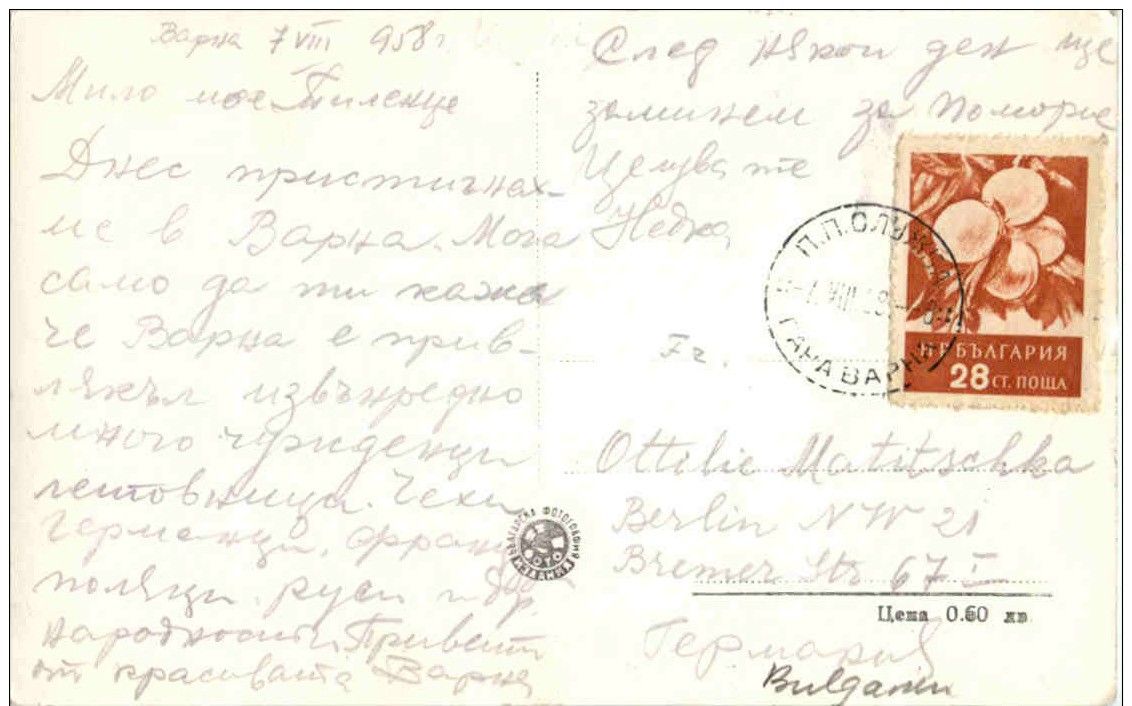 Варна 7 VIII 958 г
Мило мое Пиленце
Днес пристигнах-
ме в Варна. Мога
само да ти кажа
че Варна е прив-
лякъл извънредно
много чужденци
летовници. Чехи,
Германци, французи
поляци, руси и др.
народности. Привет
от красивата Варна
След някой ден ще
заминем за Поморие
Целува те
Недка
П.П.СЛУЖБА
ГАРА ВАРНА
Н Р БЪЛГАРИЯ
28 СТ. ПОЩА
Fr.
Ottilie Matitschka
Berlin NW 21
Bremer Str 67 I
БЪЛГАРСКА ФОТОГРАФИЯ
Цена 0.60 лв
Германия
Bulgarien